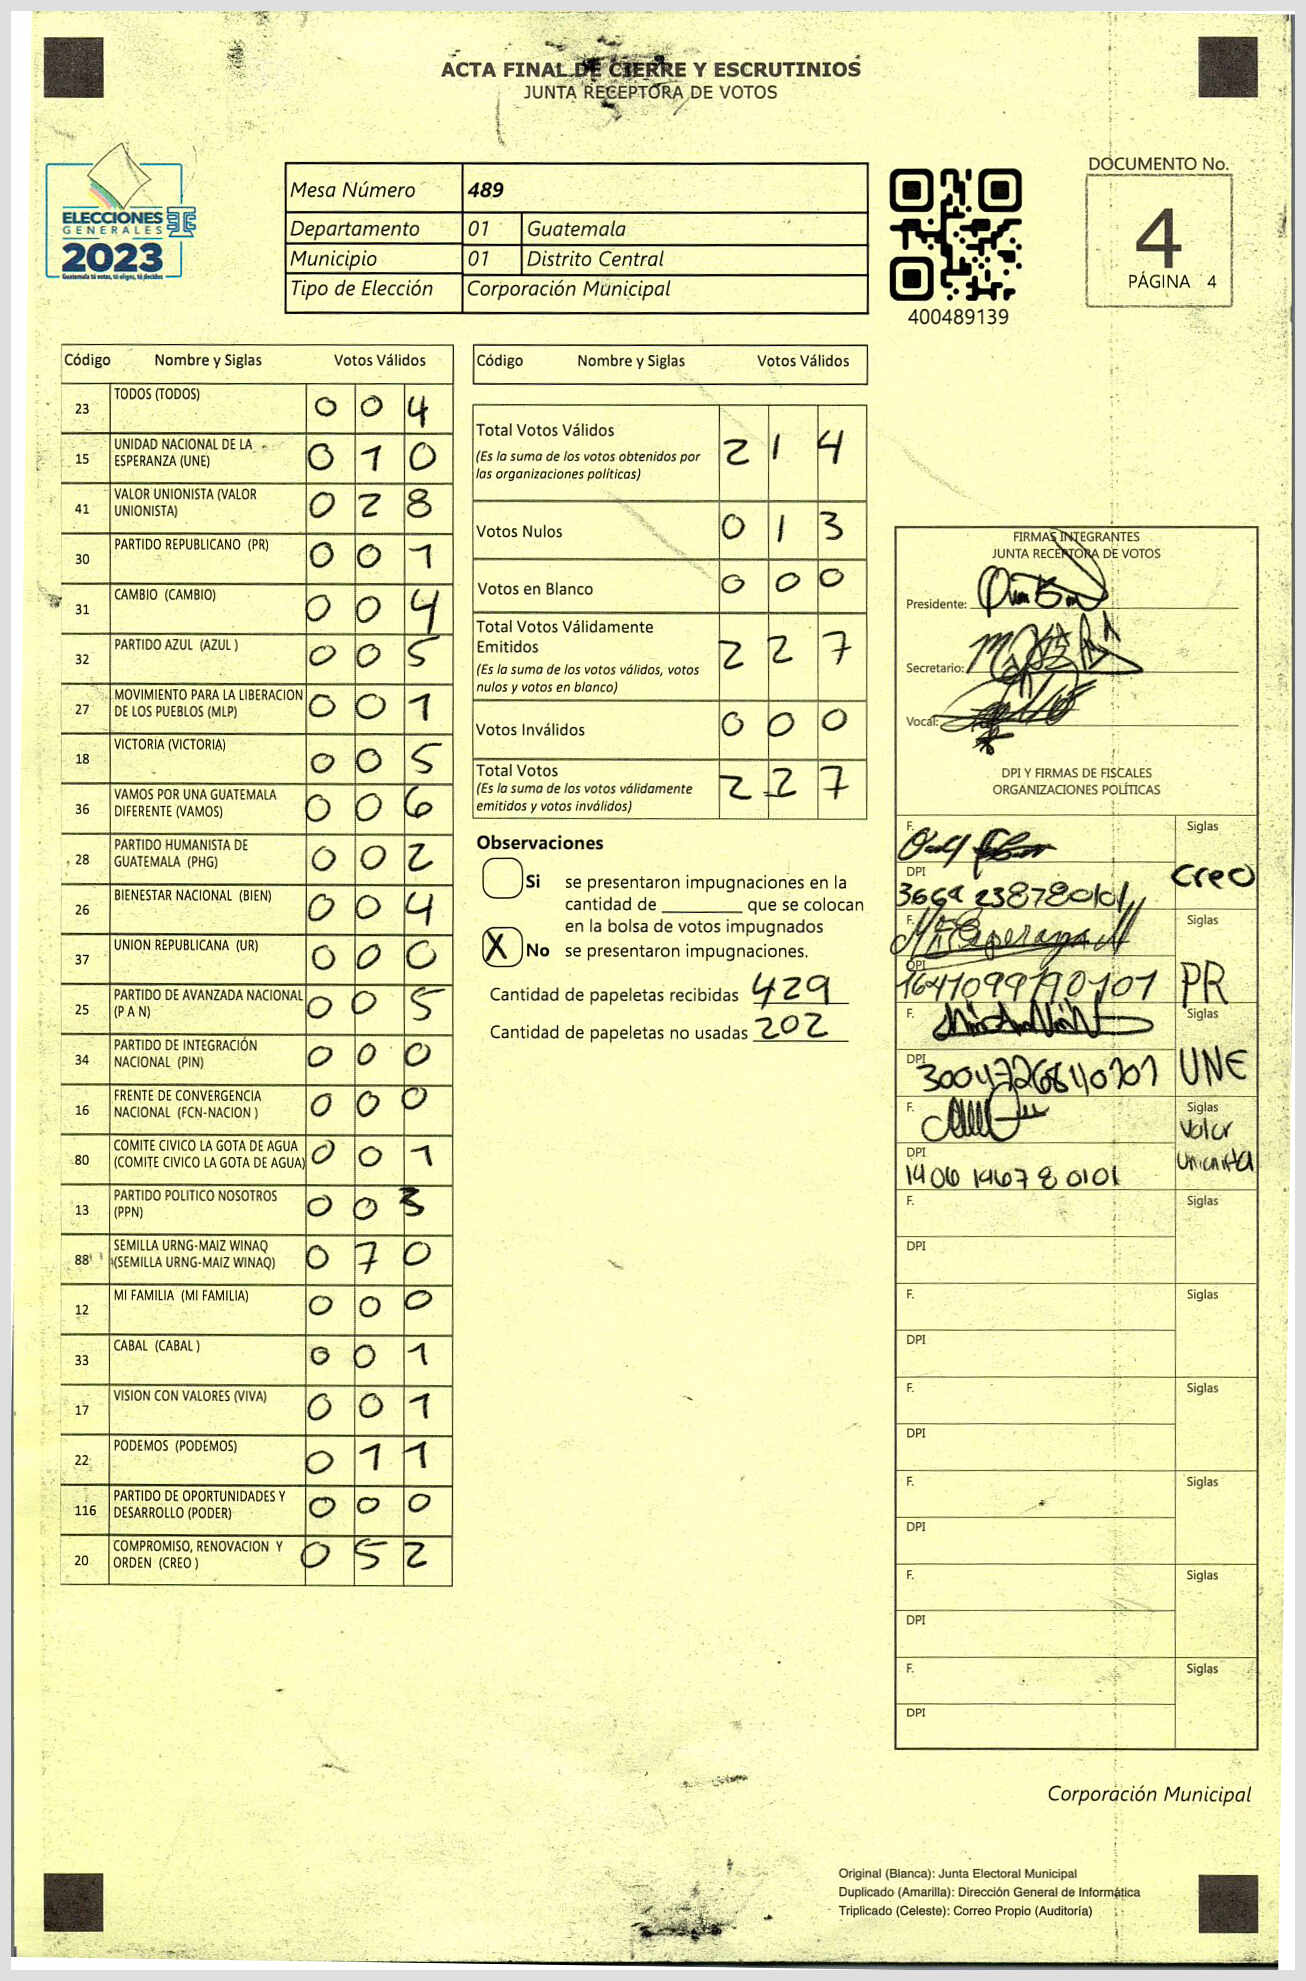 ACTA FINAL DE CIERRE Y ESCRUTINIOS
JUNTA RECEPTORA DE VOTOS
ELECCIONES
GENERALES
2023
Guatemala tú votas, tú eliges, tú decides
Mesa Número 489
Departamento 01 Guatemala
Municipio 01 Distrito Central
Tipo de Elección Corporación Municipal
400489139
DOCUMENTO No.
4
PÁGINA 4
Código Nombre y Siglas Votos Válidos
23 TODOS (TODOS) 0 0 4
15 UNIDAD NACIONAL DE LA
ESPERANZA (UNE) 0 1 0
41 VALOR UNIONISTA (VALOR
UNIONISTA) 0 2 8
30 PARTIDO REPUBLICANO (PR) 0 0 1
31 CAMBIO (CAMBIO) 0 0 4
32 PARTIDO AZUL (AZUL ) 0 0 5
27 MOVIMIENTO PARA LA LIBERACION
DE LOS PUEBLOS (MLP) 0 0 1
18 VICTORIA (VICTORIA) 0 0 5
36 VAMOS POR UNA GUATEMALA
DIFERENTE (VAMOS) 0 0 6
28 PARTIDO HUMANISTA DE
GUATEMALA (PHG) 0 0 2
26 BIENESTAR NACIONAL (BIEN) 0 0 4
37 UNION REPUBLICANA (UR) 0 0 0
25 PARTIDO DE AVANZADA NACIONAL
(P A N) 0 0 5
34 PARTIDO DE INTEGRACIÓN
NACIONAL (PIN) 0 0 0
16 FRENTE DE CONVERGENCIA
NACIONAL (FCN-NACION ) 0 0 0
80 COMITE CIVICO LA GOTA DE AGUA
(COMITE CIVICO LA GOTA DE AGUA) 0 0 1
13 PARTIDO POLITICO NOSOTROS
(PPN) 0 0 3
88 SEMILLA URNG-MAIZ WINAQ
(SEMILLA URNG-MAIZ WINAQ) 0 7 0
12 MI FAMILIA (MI FAMILIA) 0 0 0
33 CABAL (CABAL ) 0 0 1
17 VISION CON VALORES (VIVA) 0 0 1
22 PODEMOS (PODEMOS) 0 1 1
116 PARTIDO DE OPORTUNIDADES Y
DESARROLLO (PODER) 0 0 0
20 COMPROMISO, RENOVACION Y
ORDEN (CREO ) 0 5 2
Código Nombre y Siglas Votos Válidos
Total Votos Válidos 2 1 4
(Es la suma de los votos obtenidos por
las organizaciones políticas)
Votos Nulos 0 1 3
Votos en Blanco 0 0 0
Total Votos Válidamente
Emitidos 2 2 7
(Es la suma de los votos válidos, votos
nulos y votos en blanco)
Votos Inválidos 0 0 0
Total Votos 2 2 7
(Es la suma de los votos válidamente
emitidos y votos inválidos)
Observaciones
Si se presentaron impugnaciones en la
cantidad de ________ que se colocan
en la bolsa de votos impugnados
X No se presentaron impugnaciones.
Cantidad de papeletas recibidas 429
Cantidad de papeletas no usadas 202
FIRMAS INTEGRANTES
JUNTA RECEPTORA DE VOTOS
Presidente:
Secretario:
Vocal:
DPI Y FIRMAS DE FISCALES
ORGANIZACIONES POLÍTICAS
F. Siglas
Creo
DPI
F. Siglas
DPI
PR
F. Siglas
DPI
3004726840101 UNE
F. Siglas
Valor
Unionista
DPI
1906 14678 0101
F. Siglas
DPI
F. Siglas
DPI
F. Siglas
DPI
F. Siglas
DPI
F. Siglas
DPI
F. Siglas
DPI
Corporación Municipal
Original (Blanca): Junta Electoral Municipal
Duplicado (Amarilla): Dirección General de Informática
Triplicado (Celeste): Correo Propio (Auditoría)